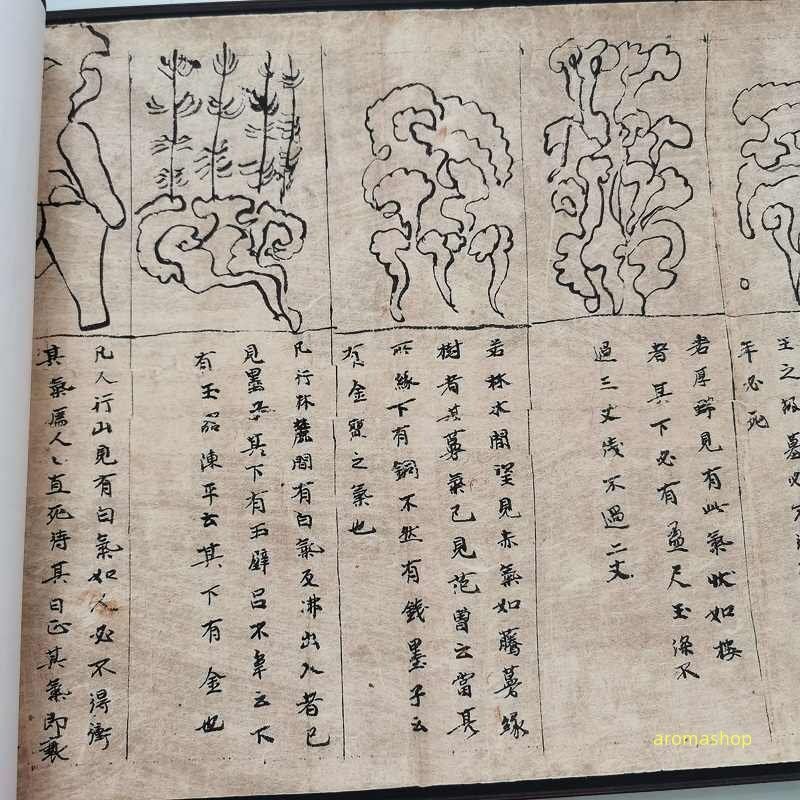 王之故墓必
年必死
若厚野見有此氣狀如樓
者其下必有盈尺玉深不
過三丈淺不過二丈
若林水間望見赤氣如藤蔓緣
樹者其蔓氣已見范曾云當其
所緣下有銅不然有錢墨子云
有金寶之氣也
凡行林麓間有白氣及沸出入者已
見墨子其下有玉璧呂不韋云下
有玉器陳平云其下有金也
凡人行山見有白氣如人必不得衝
其氣爲人々直死待其日正其氣即
aromashop